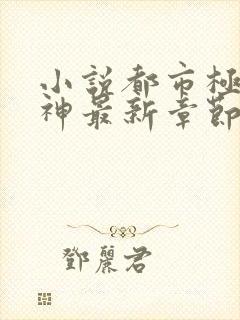 小说都市极
神最新章節
鄧麗君